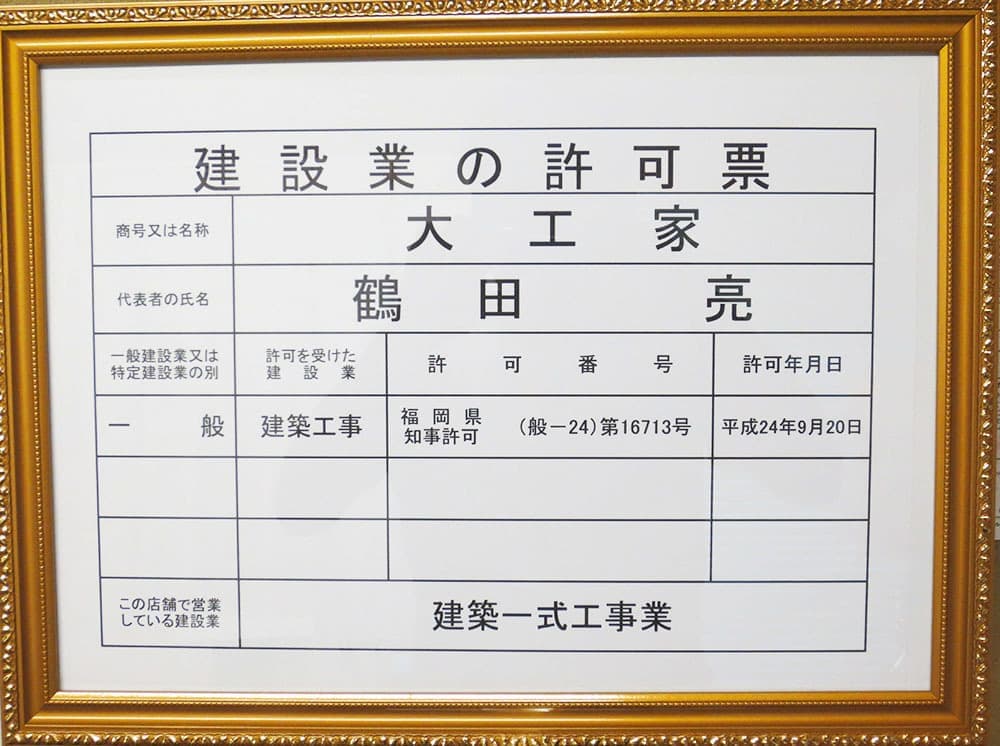 建設業の許可票
商号又は名称
大工家
代表者の氏名
鶴田亮
一般建設業又は
特定建設業の別
許可を受けた
建設業
許可番号
許可年月日
一般
建築工事
福岡県
知事許可
(般－24)第16713号
平成24年9月20日
この店舗で営業
している建設業
建築一式工事業